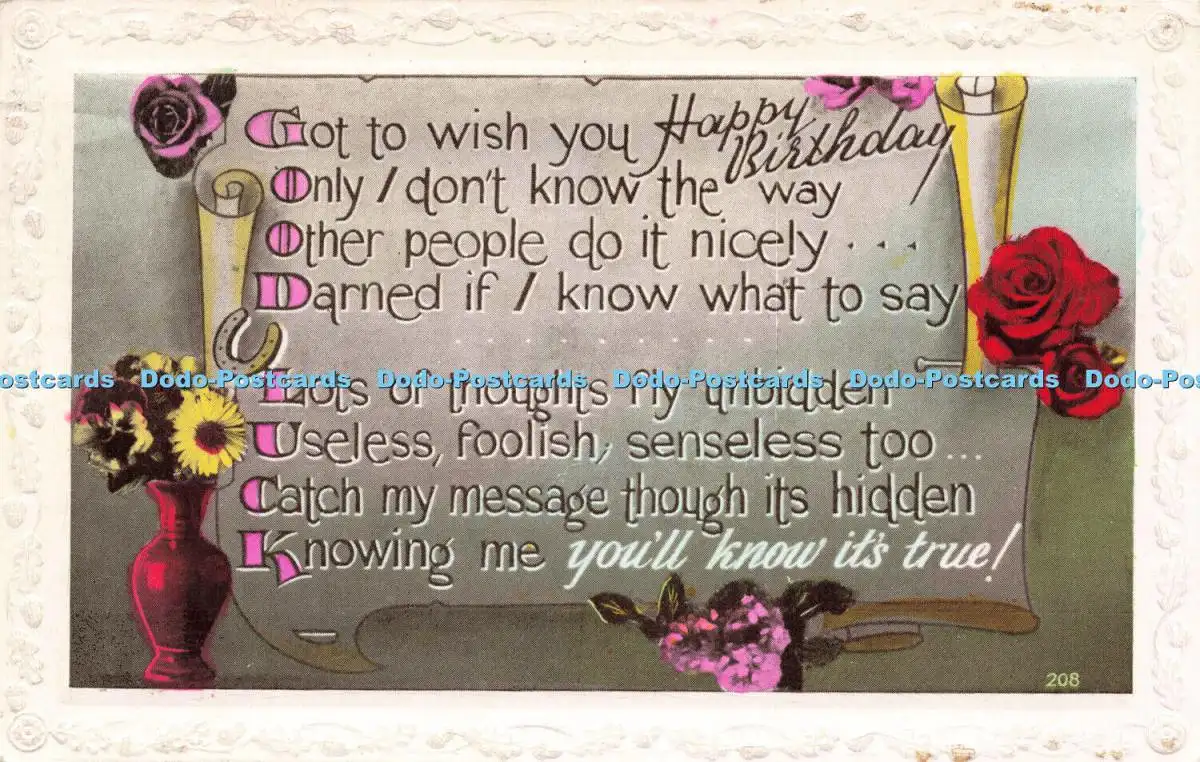 Got to wish you Happy Birthday
Only I don't know the way
Other people do it nicely . . .
Darned if I know what to say
. . . . . . . . . .
Postcards Dodo-Postcards Dodo-Postcards Dodo-Postcards Dodo-Postcards Dodo-Pos
Lots of thoughts fly unbidden
Useless, foolish, senseless too ...
Catch my message though its hidden
Knowing me you'll know it's true!
208